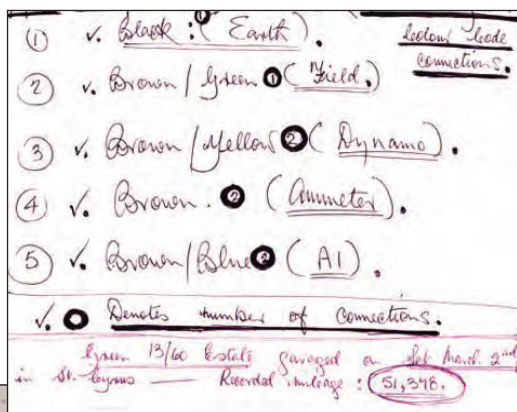 ① ✓. Black : ① (Earth).
Colour Code
Connections.
② ✓. Brown / Green ① (Field.)
③ ✓. Brown / Yellow ② (Dynamo).
④ ✓. Brown. ② (Ammeter).
⑤ ✓. Brown / Blue ② (A1).
✓. Denotes number of connections.
Green 13/60 Estate garaged on Sat March 2nd
in St. — Recorded mileage : 51,348.